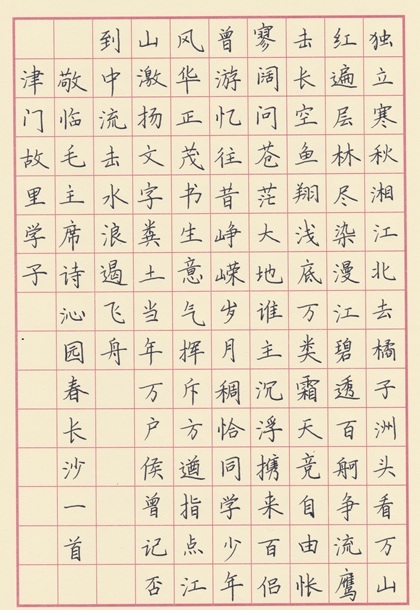 独立寒秋湘江北去橘子洲头看万山
红遍层林尽染漫江碧透百舸争流鹰
击长空鱼翔浅底万类霜天竞自由怅
寥阔问苍茫大地谁主沉浮携来百侣
曾游忆往昔峥嵘岁月稠恰同学少年
风华正茂书生意气挥斥方遒指点江
山激扬文字粪土当年万户侯曾记否
到中流击水浪遏飞舟
敬临毛主席诗沁园春长沙一首
津门故里学子